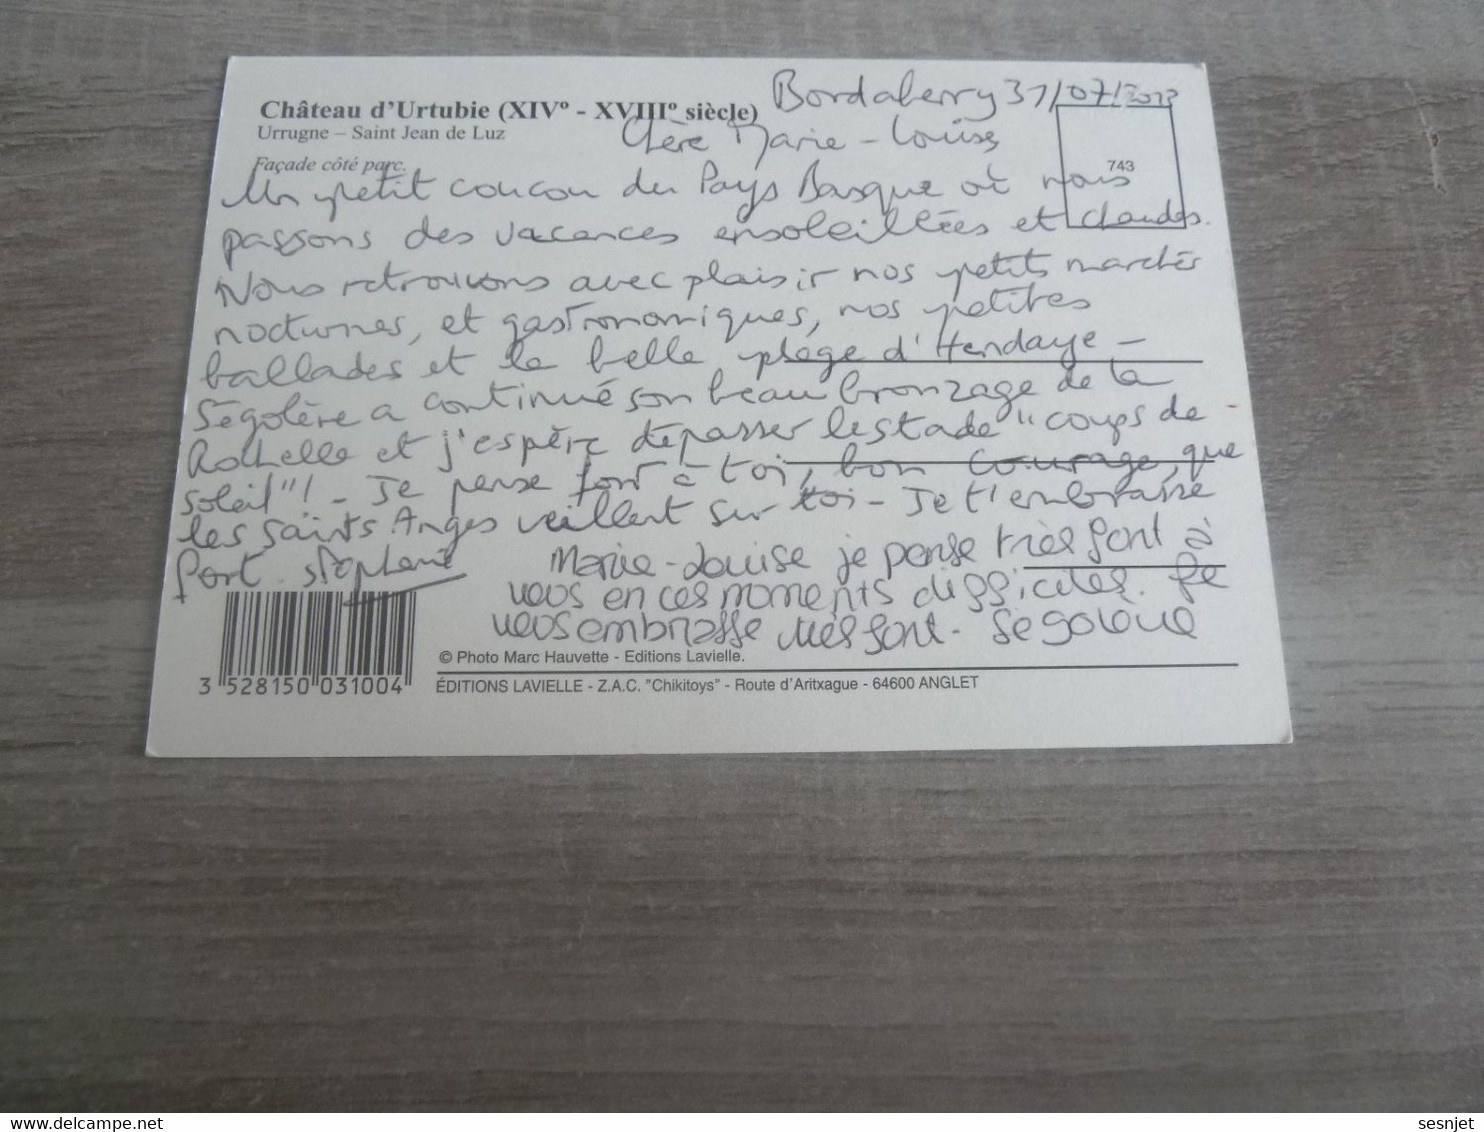 Bordaberry 31/07/2013
Château d'Urtubie (XIVº - XVIIIº siècle)
Urrugne – Saint Jean de Luz
Chère Marie-Louise
Façade côté parc.
743
Un petit coucou du Pays Basque où nous
passons des vacances ensoleillées et chaudes.
Nous retrouvons avec plaisir nos petits marchés
nocturnes, et gastronomiques, nos petites
ballades et la belle plage d'Hendaye -
Ségolène a continué son beau bronzage de la
Rochelle et j'espère dépasser le stade "coups de
soleil"! - Je pense fort à toi, bon courage, que
les Saints Anges veillent sur toi - Je t'embrasse
fort. Stéphanie
Marie-Louise je pense très fort à
vous en ces moments difficiles. Je
vous embrasse très fort - Ségolène
© Photo Marc Hauvette - Editions Lavielle.
3 528150 031004
ÉDITIONS LAVIELLE - Z.A.C. "Chikitoys" - Route d'Aritxague - 64600 ANGLET
sesnjet